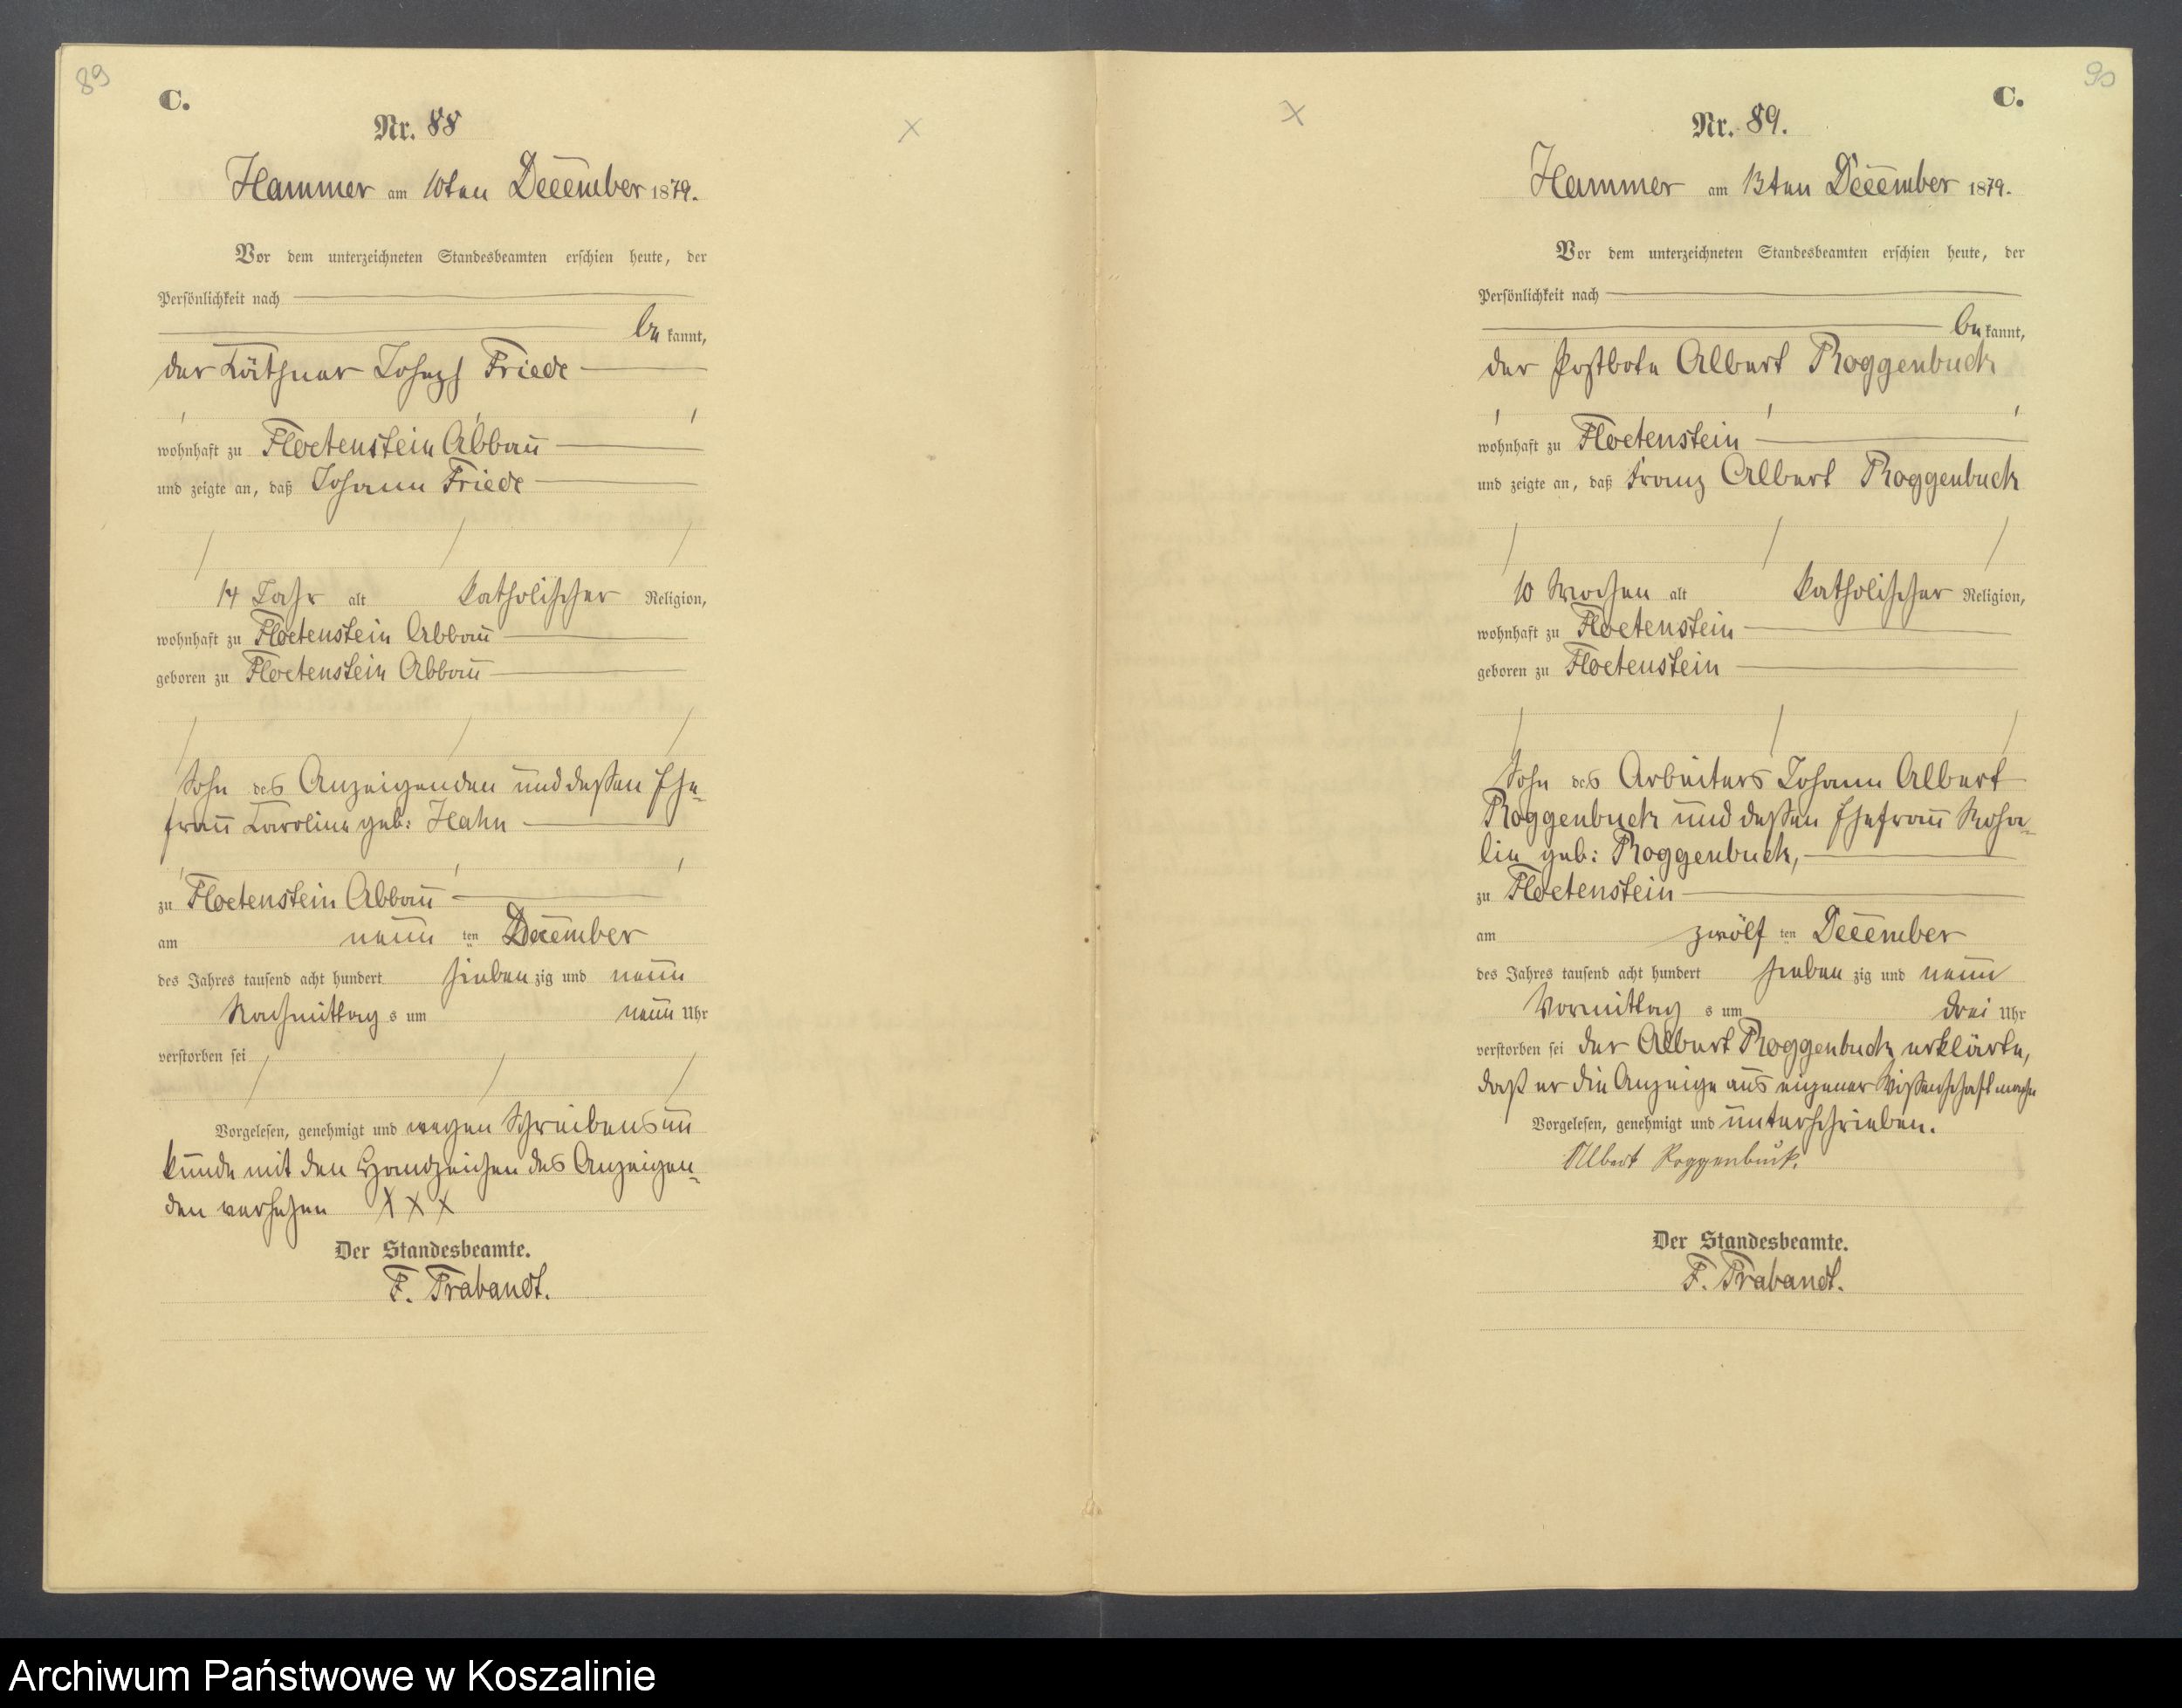 89
C.
Nr. 88
Hammer am 10ten December 1879.
Vor dem unterzeichneten Standesbeamten erschien heute, der
Persönlichkeit nach
be kannt,
der Käthner Joseph Friede
wohnhaft zu Floetenstein Abbau
und zeigte an, daß Johann Friede
14 Jahr alt katholischer Religion,
wohnhaft zu Floetenstein Abbau
geboren zu Floetenstein Abbau
Sohn des Anzeigenden und deßen Ehe-
frau Karoline geb: Hahn
zu Floetenstein Abbau
am neun ten December
des Jahres tausend acht hundert sieben zig und neun
Nachmittag s um neun Uhr
verstorben sei
Vorgelesen, genehmigt und wegen Schreibensun
kunde mit den Handzeichen des Anzeigen-
den versehen X X X
Der Standesbeamte.
F. Trabandt.
90
C.
Nr. 89.
Hammer am 13ten December 1879.
Vor dem unterzeichneten Standesbeamten erschien heute, der
Persönlichkeit nach
be kannt,
der Postbote Albert Roggenbuck
wohnhaft zu Floetenstein
und zeigte an, daß Franz Albert Roggenbuck
10 Wochen alt katholischer Religion,
wohnhaft zu Floetenstein
geboren zu Floetenstein
Sohn des Arbeiters Johann Albert
Roggenbuck und deßen Ehefrau Rosa-
lie geb: Roggenbuck,
zu Floetenstein
am zwölf ten December
des Jahres tausend acht hundert sieben zig und neun
Vormittag s um drei Uhr
verstorben sei der Albert Roggenbuck erklärte,
daß er die Anzeige aus eigener Wißenschaft mache
Vorgelesen, genehmigt und unterschrieben.
Albert Roggenbuck.
Der Standesbeamte.
F. Trabandt.
Archiwum Państwowe w Koszalinie